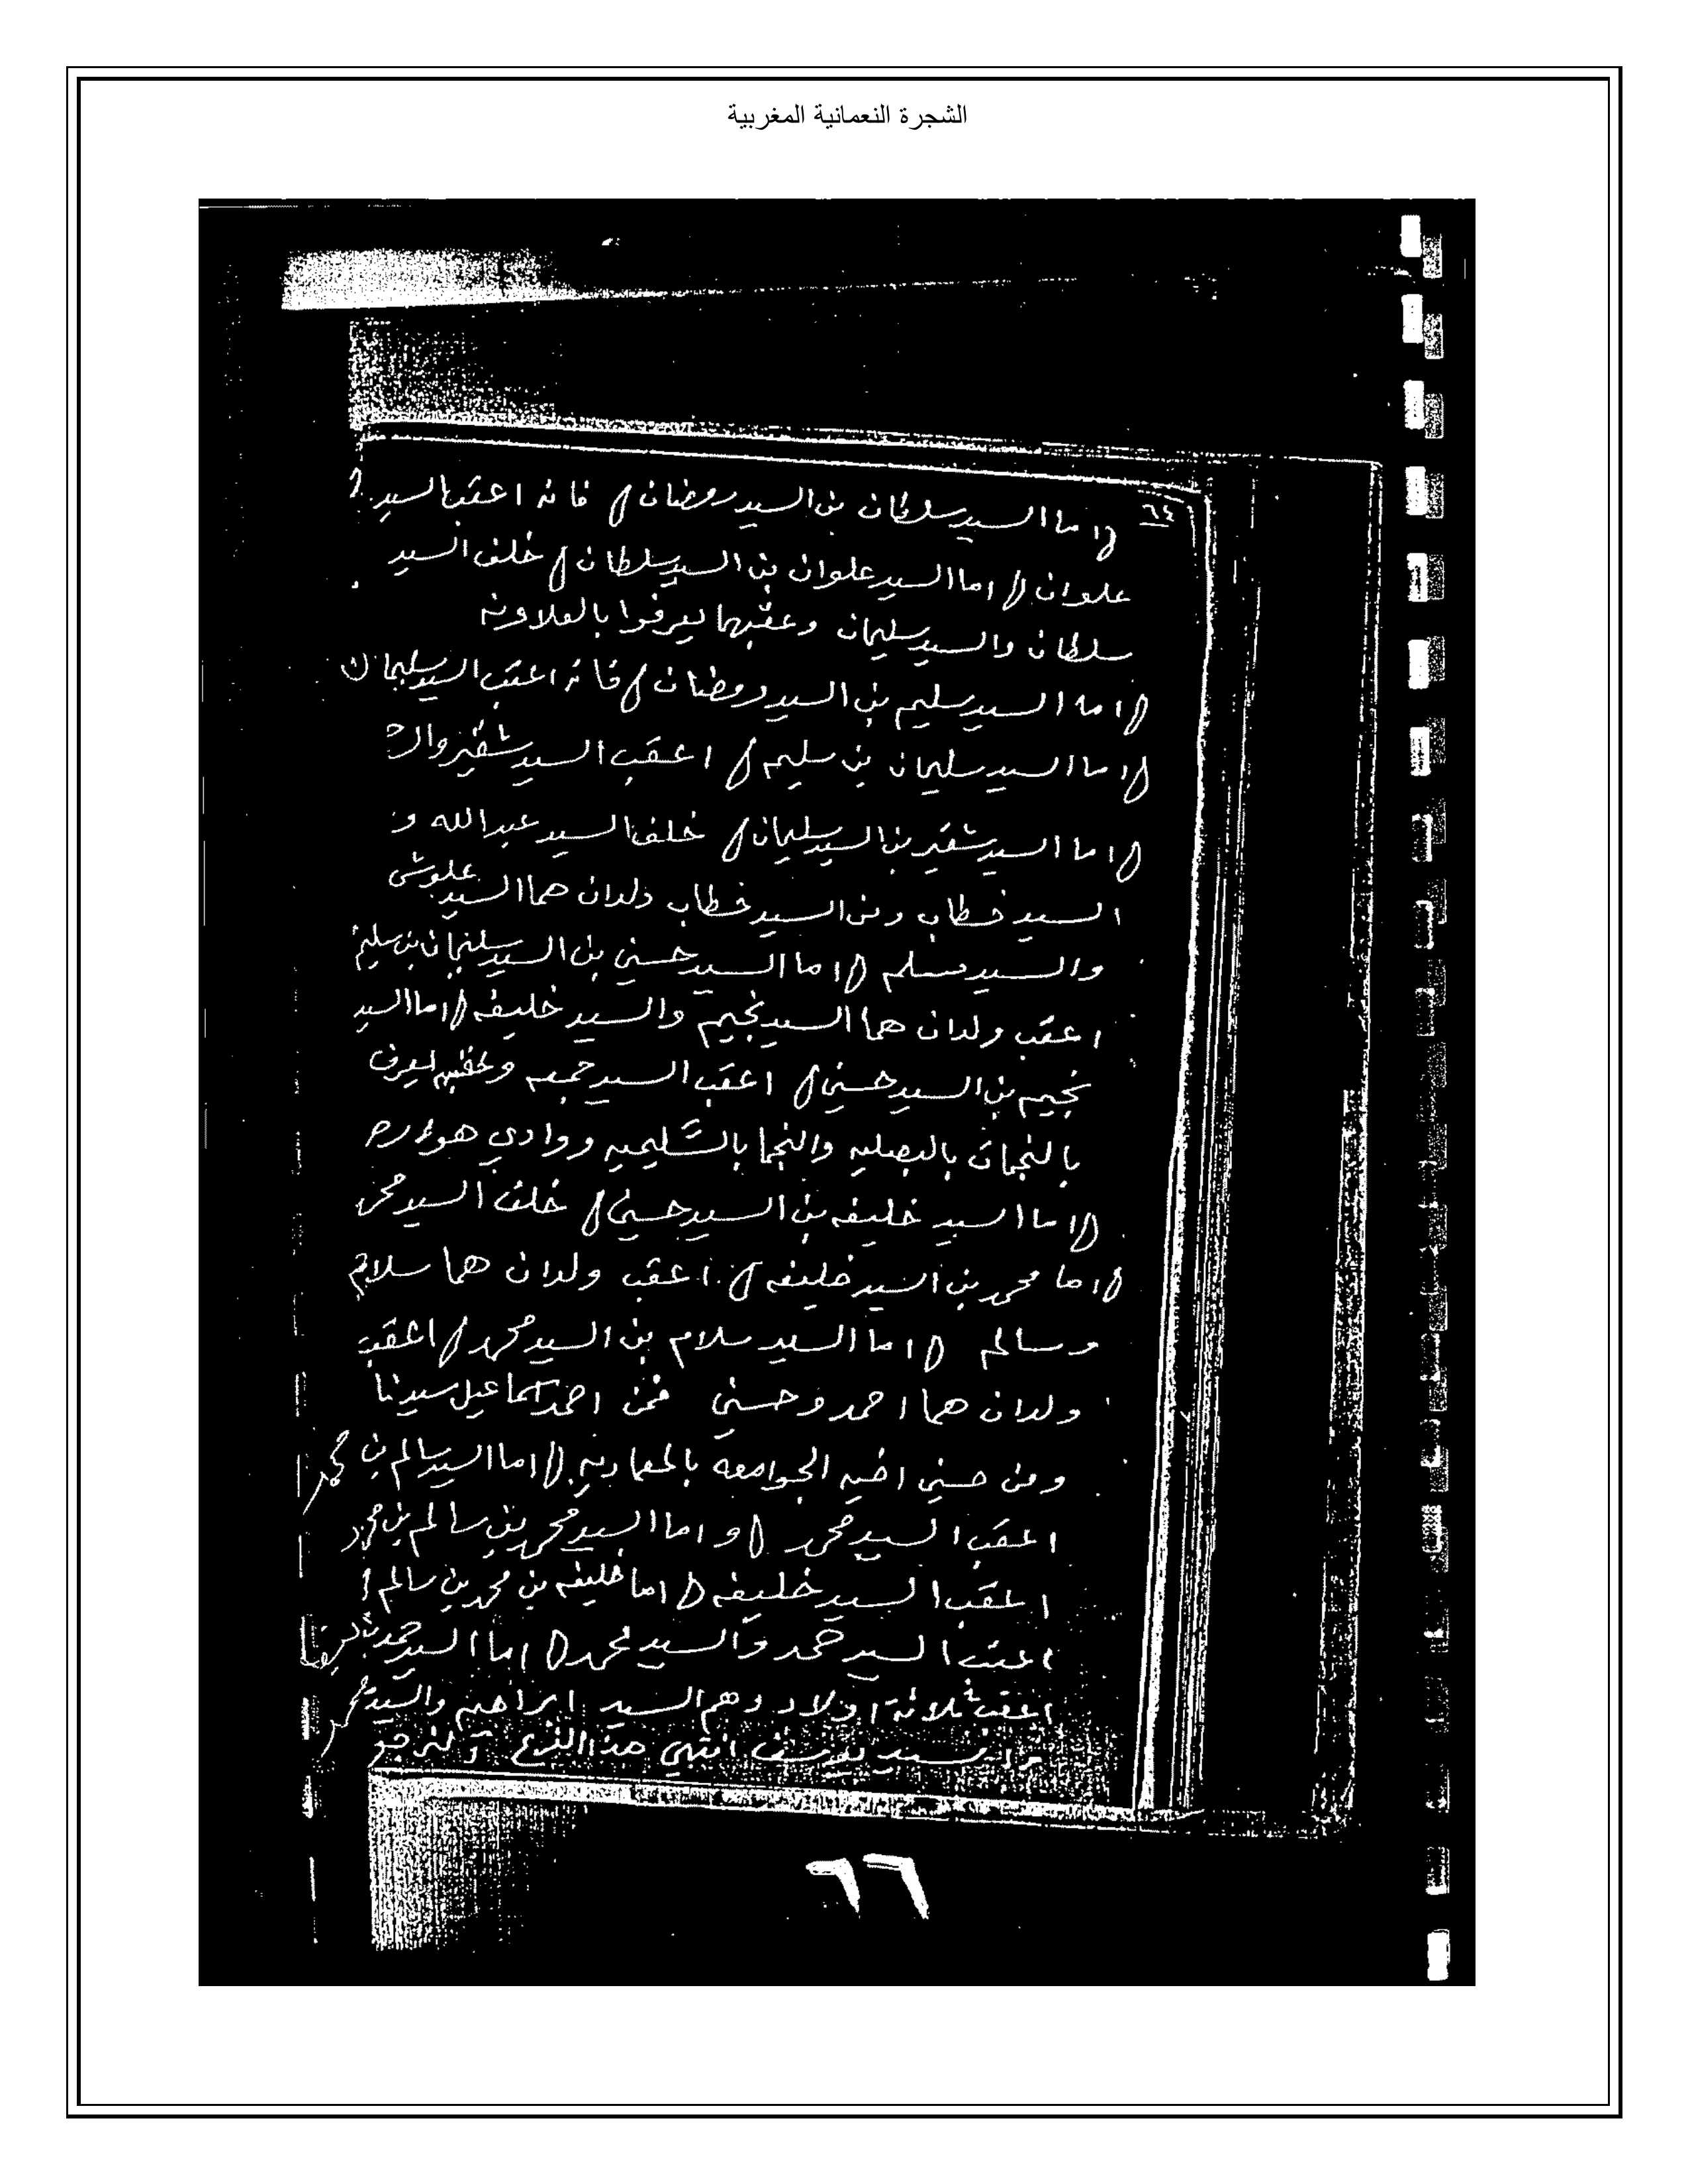 الشجرة النعمانية المغربية
٦٤
( اما السيد سلطان بن السيد رمضان ) فانه اعقب السيد
علوان ( اما السيد علوان بن السيد سلطان ) خلف السيد
سلطان والسيد سليمان وعقبهما يعرفوا بالعلاونه
( اما السيد سليم بن السيد رمضان ) فانه اعقب السيد سليمان
( اما السيد سليمان بن سليم ) اعقب السيد شقير
( اما السيد شقير بن السيد سليمان ) خلف السيد عبدالله و
السيد خطاب ومن السيد خطاب ولدان هما السيد علوش
والسيد مسلم ( اما السيد حسني بن السيد سليمان بن سليم
اعقب ولدان هما السيد نجيم والسيد خليفه ( اما السيد
نجيم بن السيد حسني ) اعقب السيد جمعه وعقبهم يعرف
بالنجمات بالبصليه والنجما ووادي هواره
( اما السيد خليفه بن السيد حسني ) خلف السيد محمد
( اما محمد بن السيد خليفه ) اعقب ولدان هما سلام
وسالم ( اما السيد سلام بن السيد محمد ) اعقب
ولدان هما احمد وحسني فمن احمد اسماعيل سيدنا
ومن حسني اخيه الجوامعه ( اما السيد سالم بن محمد
اعقب السيد محمد ( واما السيد محمد بن سالم بن محمد
اعقب السيد خليفه ( اما خليفه بن محمد بن سالم
اعقب السيد حمد والسيد محمد ( اما السيد حمد
اعقب ثلاثة اولاد وهم السيد ابراهيم والسيد محمد
السيد يوسف انتهي هذا الفرع
٦٦